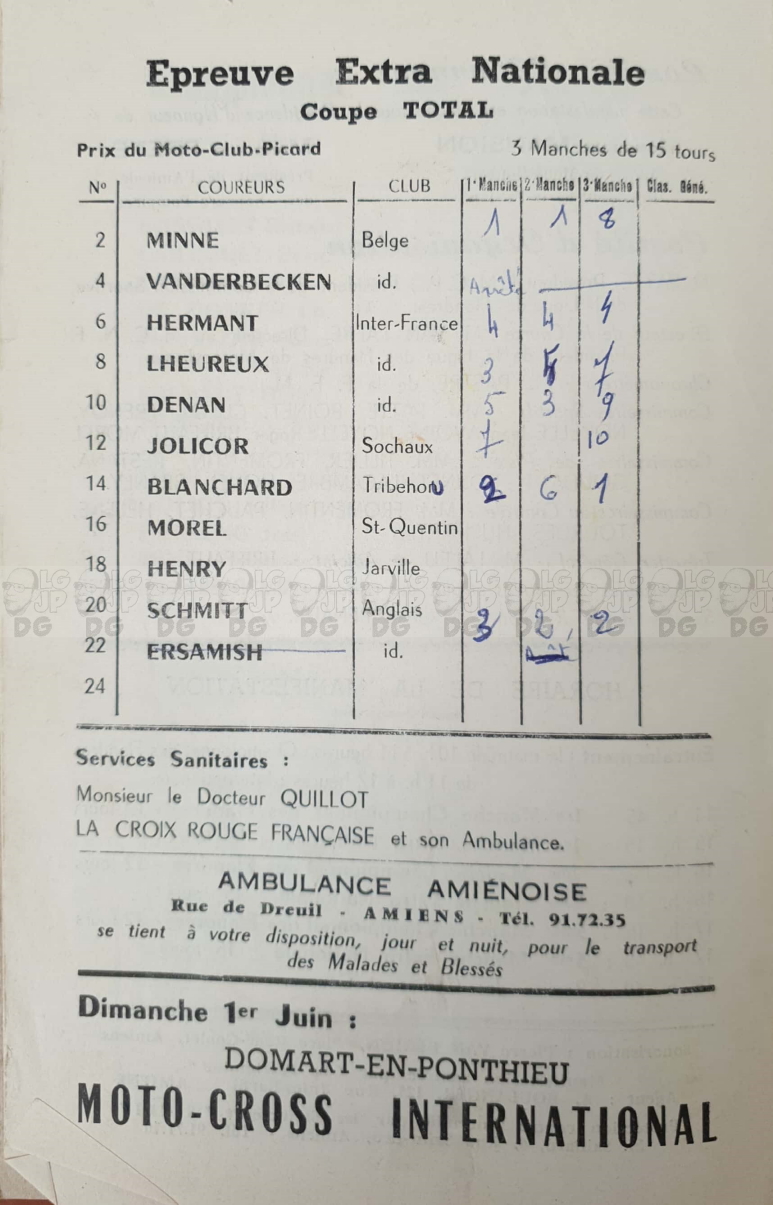 Epreuve Extra Nationale
Coupe TOTAL
Prix du Moto-Club-Picard 3 Manches de 15 tours
N° COUREURS CLUB 1e Manche 2e Manche 3e Manche Clas. Géné.
2 MINNE Belge 1 1 8
4 VANDERBECKEN id. Arrêté
6 HERMANT Inter-France 4 4 4
8 LHEUREUX id. 3 5 7
10 DENAN id. 5 3 9
12 JOLICOR Sochaux 7 10
14 BLANCHARD Tribehou 2 6 1
16 MOREL St-Quentin
18 HENRY Jarville
20 SCHMITT Anglais 3 2 2
22 ERSAMISH id.
24
Services Sanitaires :
Monsieur le Docteur QUILLOT
LA CROIX ROUGE FRANÇAISE et son Ambulance.
AMBULANCE AMIÉNOISE
Rue de Dreuil - AMIENS - Tél. 91.72.35
se tient à votre disposition, jour et nuit, pour le transport
des Malades et Blessés
Dimanche 1er Juin :
DOMART-EN-PONTHIEU
MOTO-CROSS INTERNATIONAL